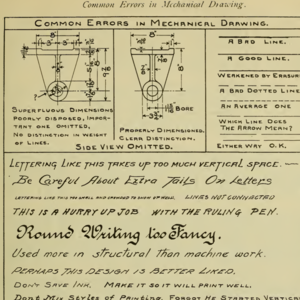 Common Errors in Mechanical Drawing.
COMMON ERRORS IN MECHANICAL DRAWING.
8"
8"
A BAD LINE.
A GOOD LINE.
WEAKENED BY ERASURE
A BAD DOTTED LINE
AN AVERAGE ONE
WHICH LINE DOES
THE ARROW MEAN?
EITHER WAY O.K.
BORE
SUPERFLUOUS DIMENSIONS
POORLY DISPOSED, IMPOR-
TANT ONE OMITTED,
NO DISTINCTION IN WEIGHT
OF LINES.
PROPERLY DIMENSIONED,
CLEAR DISTINCTION.
SIDE VIEW OMITTED.
LETTERING LIKE THIS TAKES UP TOO MUCH VERTICAL SPACE. —
Be Careful About Extra Tails On Letters
LETTERING LIKE THIS TOO SMALL AND CROWDED TO SHOW UP WELL. LINES NOT CONNECTED
THIS IS A HURRY UP JOB WITH THE RULING PEN.
Round Writing too Fancy.
Used more in structural than machine work.
PERHAPS THIS DESIGN IS BETTER LIKED.
DON'T SAVE INK. MAKE IT SO IT WILL PRINT WELL.
DON'T MIX STYLES OF PRINTING. FORGOT HE STARTED VERTICAL